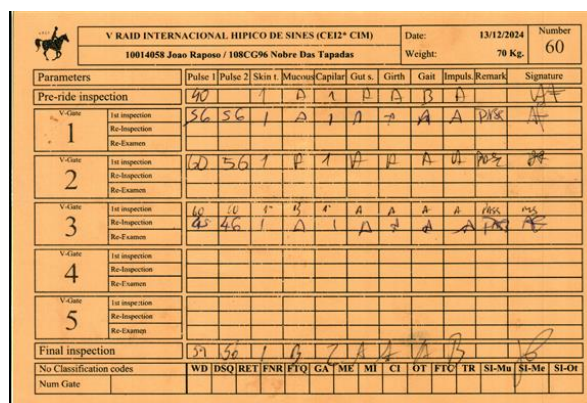 V RAID INTERNACIONAL HIPICO DE SINES (CEI2* CIM) Date: 13/12/2024 Number
10014058 Joao Raposo / 108CG96 Nobre Das Tapadas Weight: 70 Kg. 60
Parameters Pulse 1 Pulse 2 Skin t. Mucous Capilar Gut s. Girth Gait Impuls. Remark Signature
Pre-ride inspection 40 1 A 1 A A B A
V-Gate 1 1st inspection 56 56 1 A 1 A A A A pass
Re-Inspection
Re-Examen
V-Gate 2 1st inspection 60 56 1 A 1 A A A A pass
Re-Inspection
Re-Examen
V-Gate 3 1st inspection 60 60 1 B 1 A A A A pass
Re-Inspection 45 46 1 A 1 A A A A
Re-Examen
V-Gate 4 1st inspection
Re-Inspection
Re-Examen
V-Gate 5 1st inspection
Re-Inspection
Re-Examen
Final inspection 56 1 B 2 A A A B
No Classification codes WD DSQ RET FNR FTQ GA ME MI CI OT FTC TR SI-Mu SI-Me SI-Ot
Num Gate